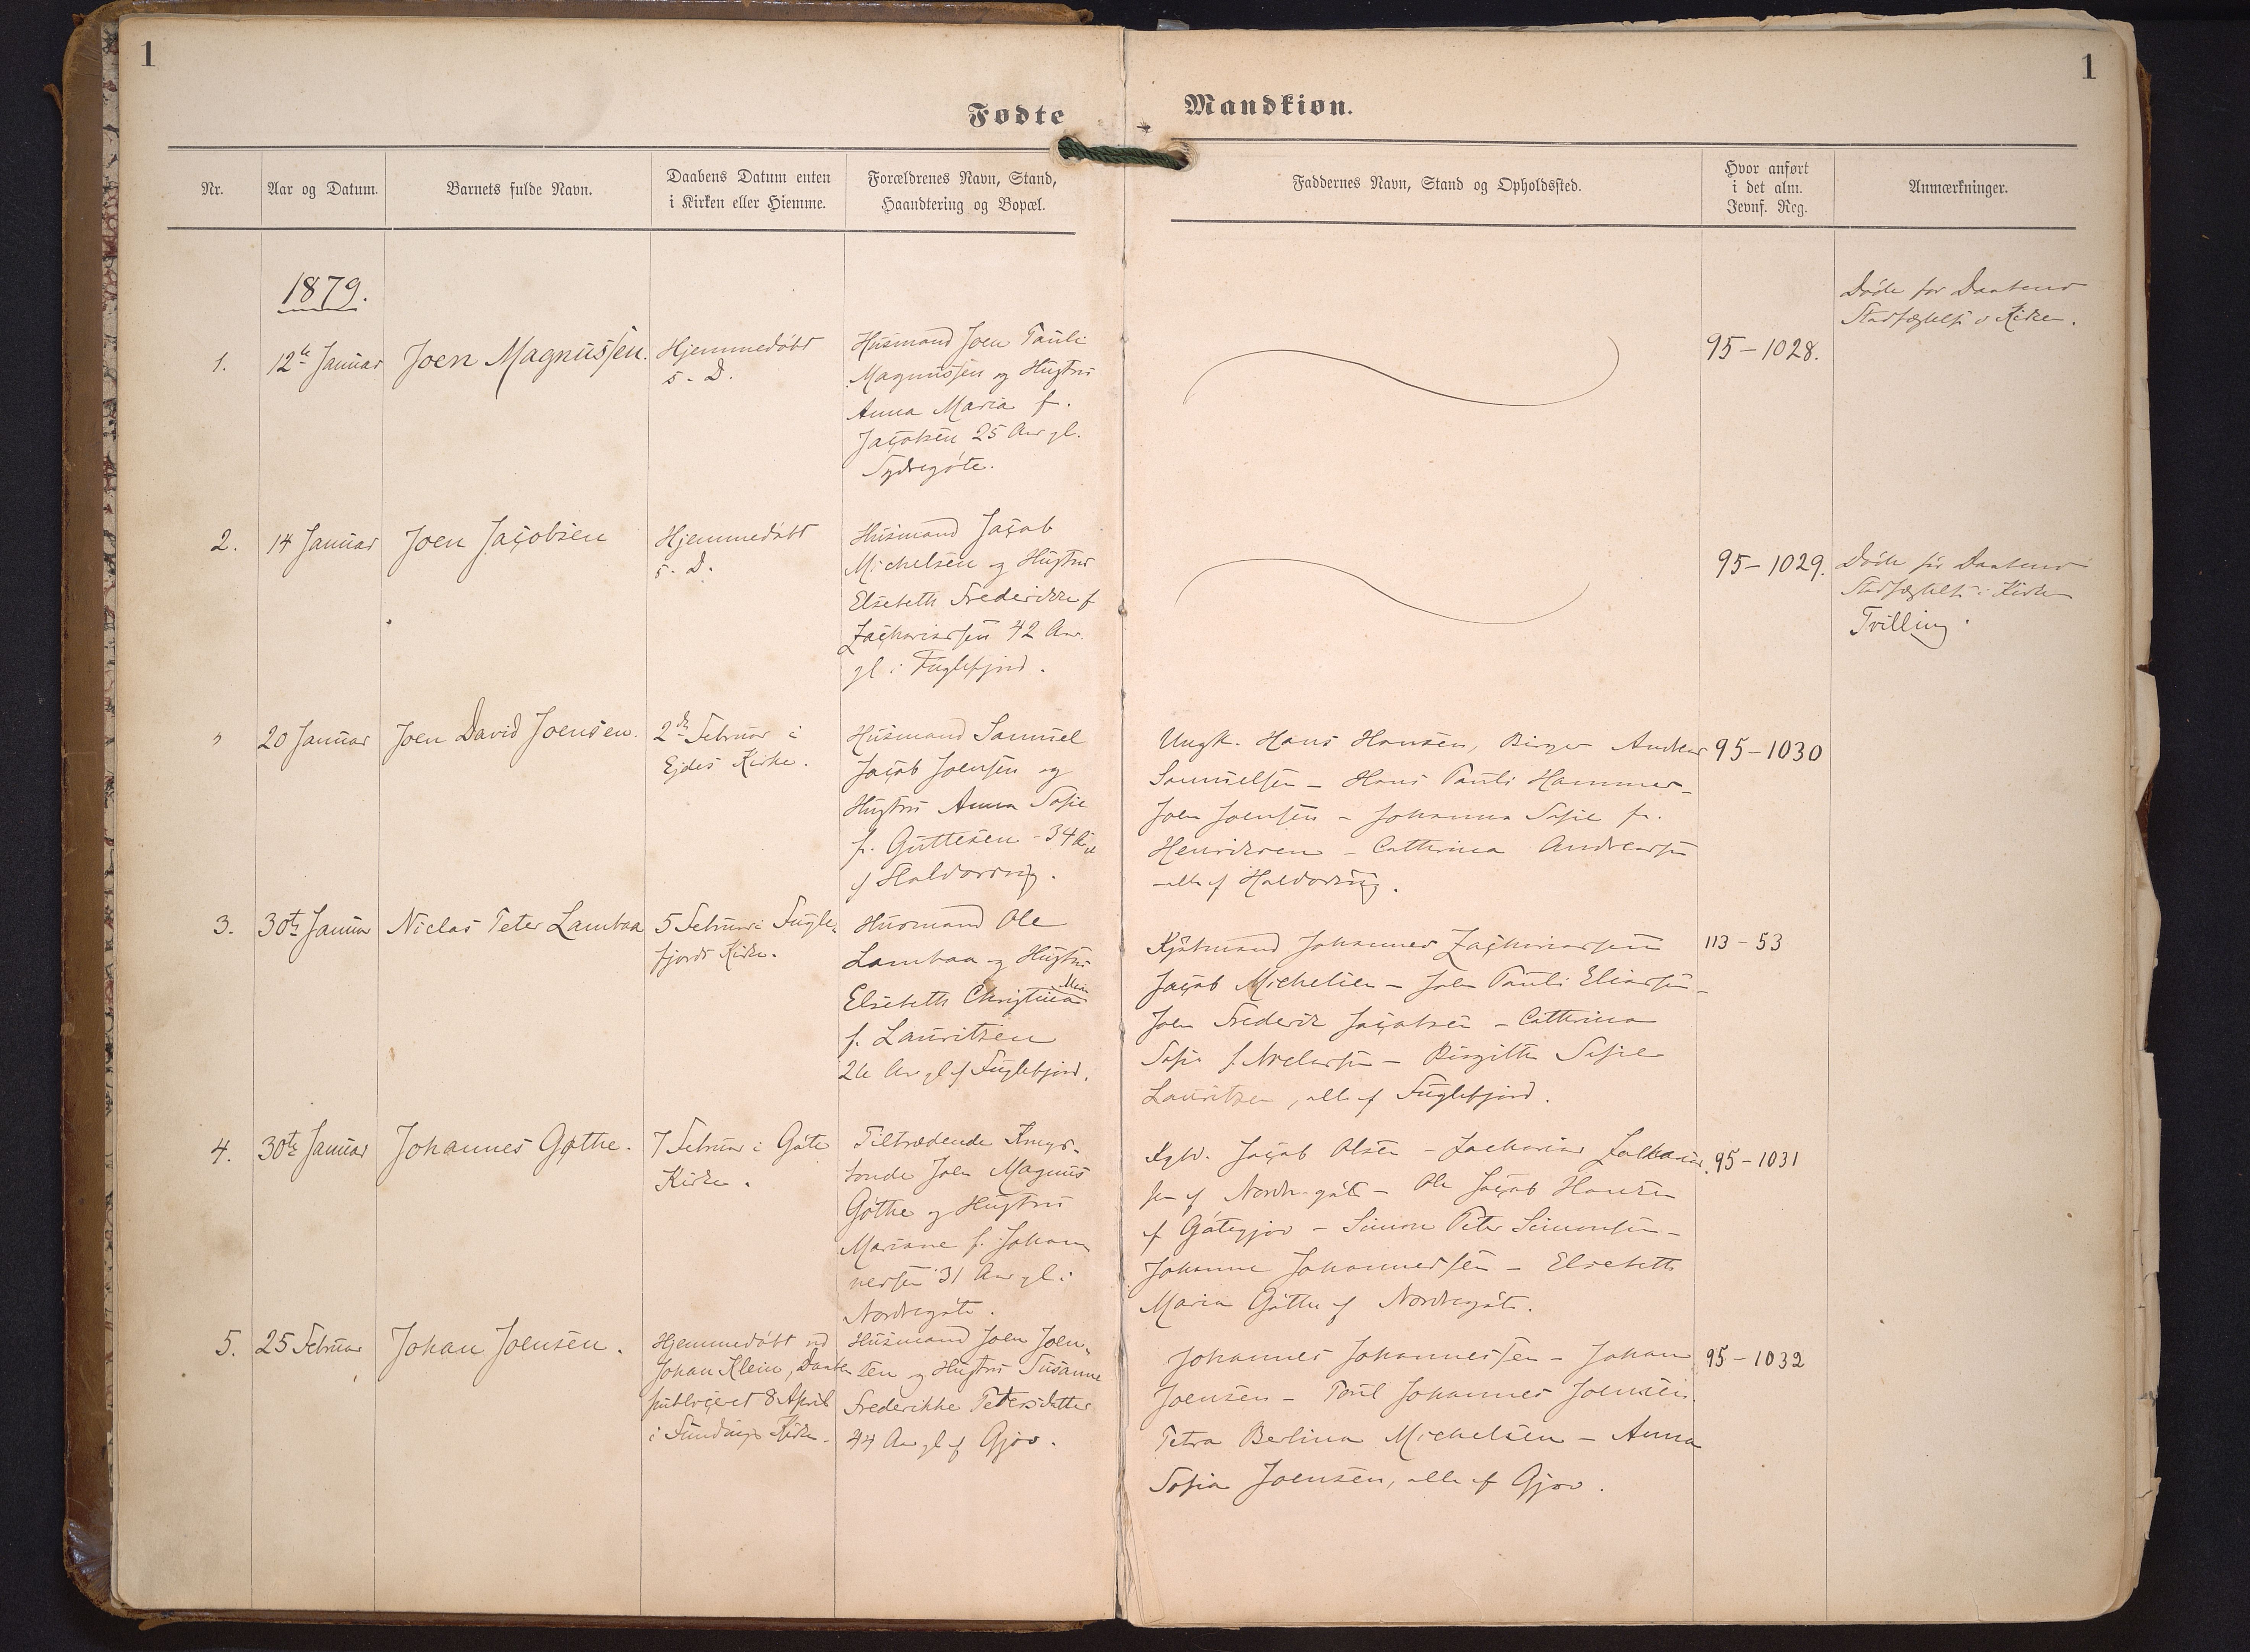 1
1
Fødte
Mandkiøn.
Nr.
Aar og Datum.
Barnets fulde Navn.
Daabens Datum enten
i Kirken eller Hiemme.
Forældrenes Navn, Stand,
Haandtering og Bopæl.
Faddernes Navn, Stand og Opholdssted.
Hvor anført
i det alm.
Jevnf. Reg.
Anmærkninger.
1879.
1.
12te Januar
Joen Magnussen.
Hjemmedöbt
s. D.
Husmand Joen Pauli
Magnussen og Hustru
Anna Maria f.
Jacobsen 25 Aar gl.
Sydregöte.
95-1028.
Döde før Daabens
Stadfæstelse i Kirken.
2.
14 Januar
Joen Jacobsen
Hjemmedöbt
s. D.
Husmand Jacob
Michelsen og Hustru
Elsebeth Frederikke f
Zachariassen 42 Aar
gl i Fuglefjord.
95-1029.
Döde før Daabens
Stadfæstelse i Kirken
Trilling
"
20 Januar
Joen David Joensen.
2den Februar i
Ejdes Kirke.
Husmand Samuel
Jacob Joensen og
Hustru Anna Sofie
f. Guttesen - 34
af Haldorsvig.
Ungk. Hans Hansen, Birger Andreas
Samuelsen - Hans Pauli Hammer-
Joen Joensen - Johanna Sofie f.
Henriksen - Cathrina Andreasen
alle af Haldorsvig.
95-1030
3.
30te Januar
Niclas Peter Lambaa
5 Februar i Fugle-
fjords Kirke.
Husmand Ole
Lambaa og Hustru
Elsebeth Christina
f. Lauritzen
26 Aar gl af Fuglefjord.
Kjöbmand Johannes Zachariassen
Jacob Michelsen - Joen Pauli Eliassen -
Joen Frederik Jacobsen - Cathrina
Sofie f. Niclassen - Birgitte Sofie
Lauritzen, alle af Fuglefjord.
113-53
4.
30te Januar
Johannes Gøthe.
7 Februar i Göte
Kirke.
Tiltrædende Kongs-
bonde Joen Magnus
Göthe og Hustru
Mariane f. Johan-
nessen 31 Aar gl i
Nordregöte.
Jacob Olsen - Zacharias Zacharias-
sen af Nordregöte - Ole Jacob Hansen
af Götegjov - Simon Peter Simonsen -
Johanne Johannessen - Elsebeth
Maria Göthe af Nordregöte.
95-1031
5.
25 Februar
Johan Joensen.
Hjemmedöbt ved
Johan Klein, Daaben
publiceret 8 April
i Fundings Kirke.
Husmand Joen Joen-
sen og Hustru Susanne
Frederikke Petersdatter
44 Aar gl af Gjov.
Johannes Johannessen - Johan
Joensen - Poul Johannes Joensen.
Petra Berlina Michelsen - Anna
Sofia Joensen, alle af Gjov.
95-1032